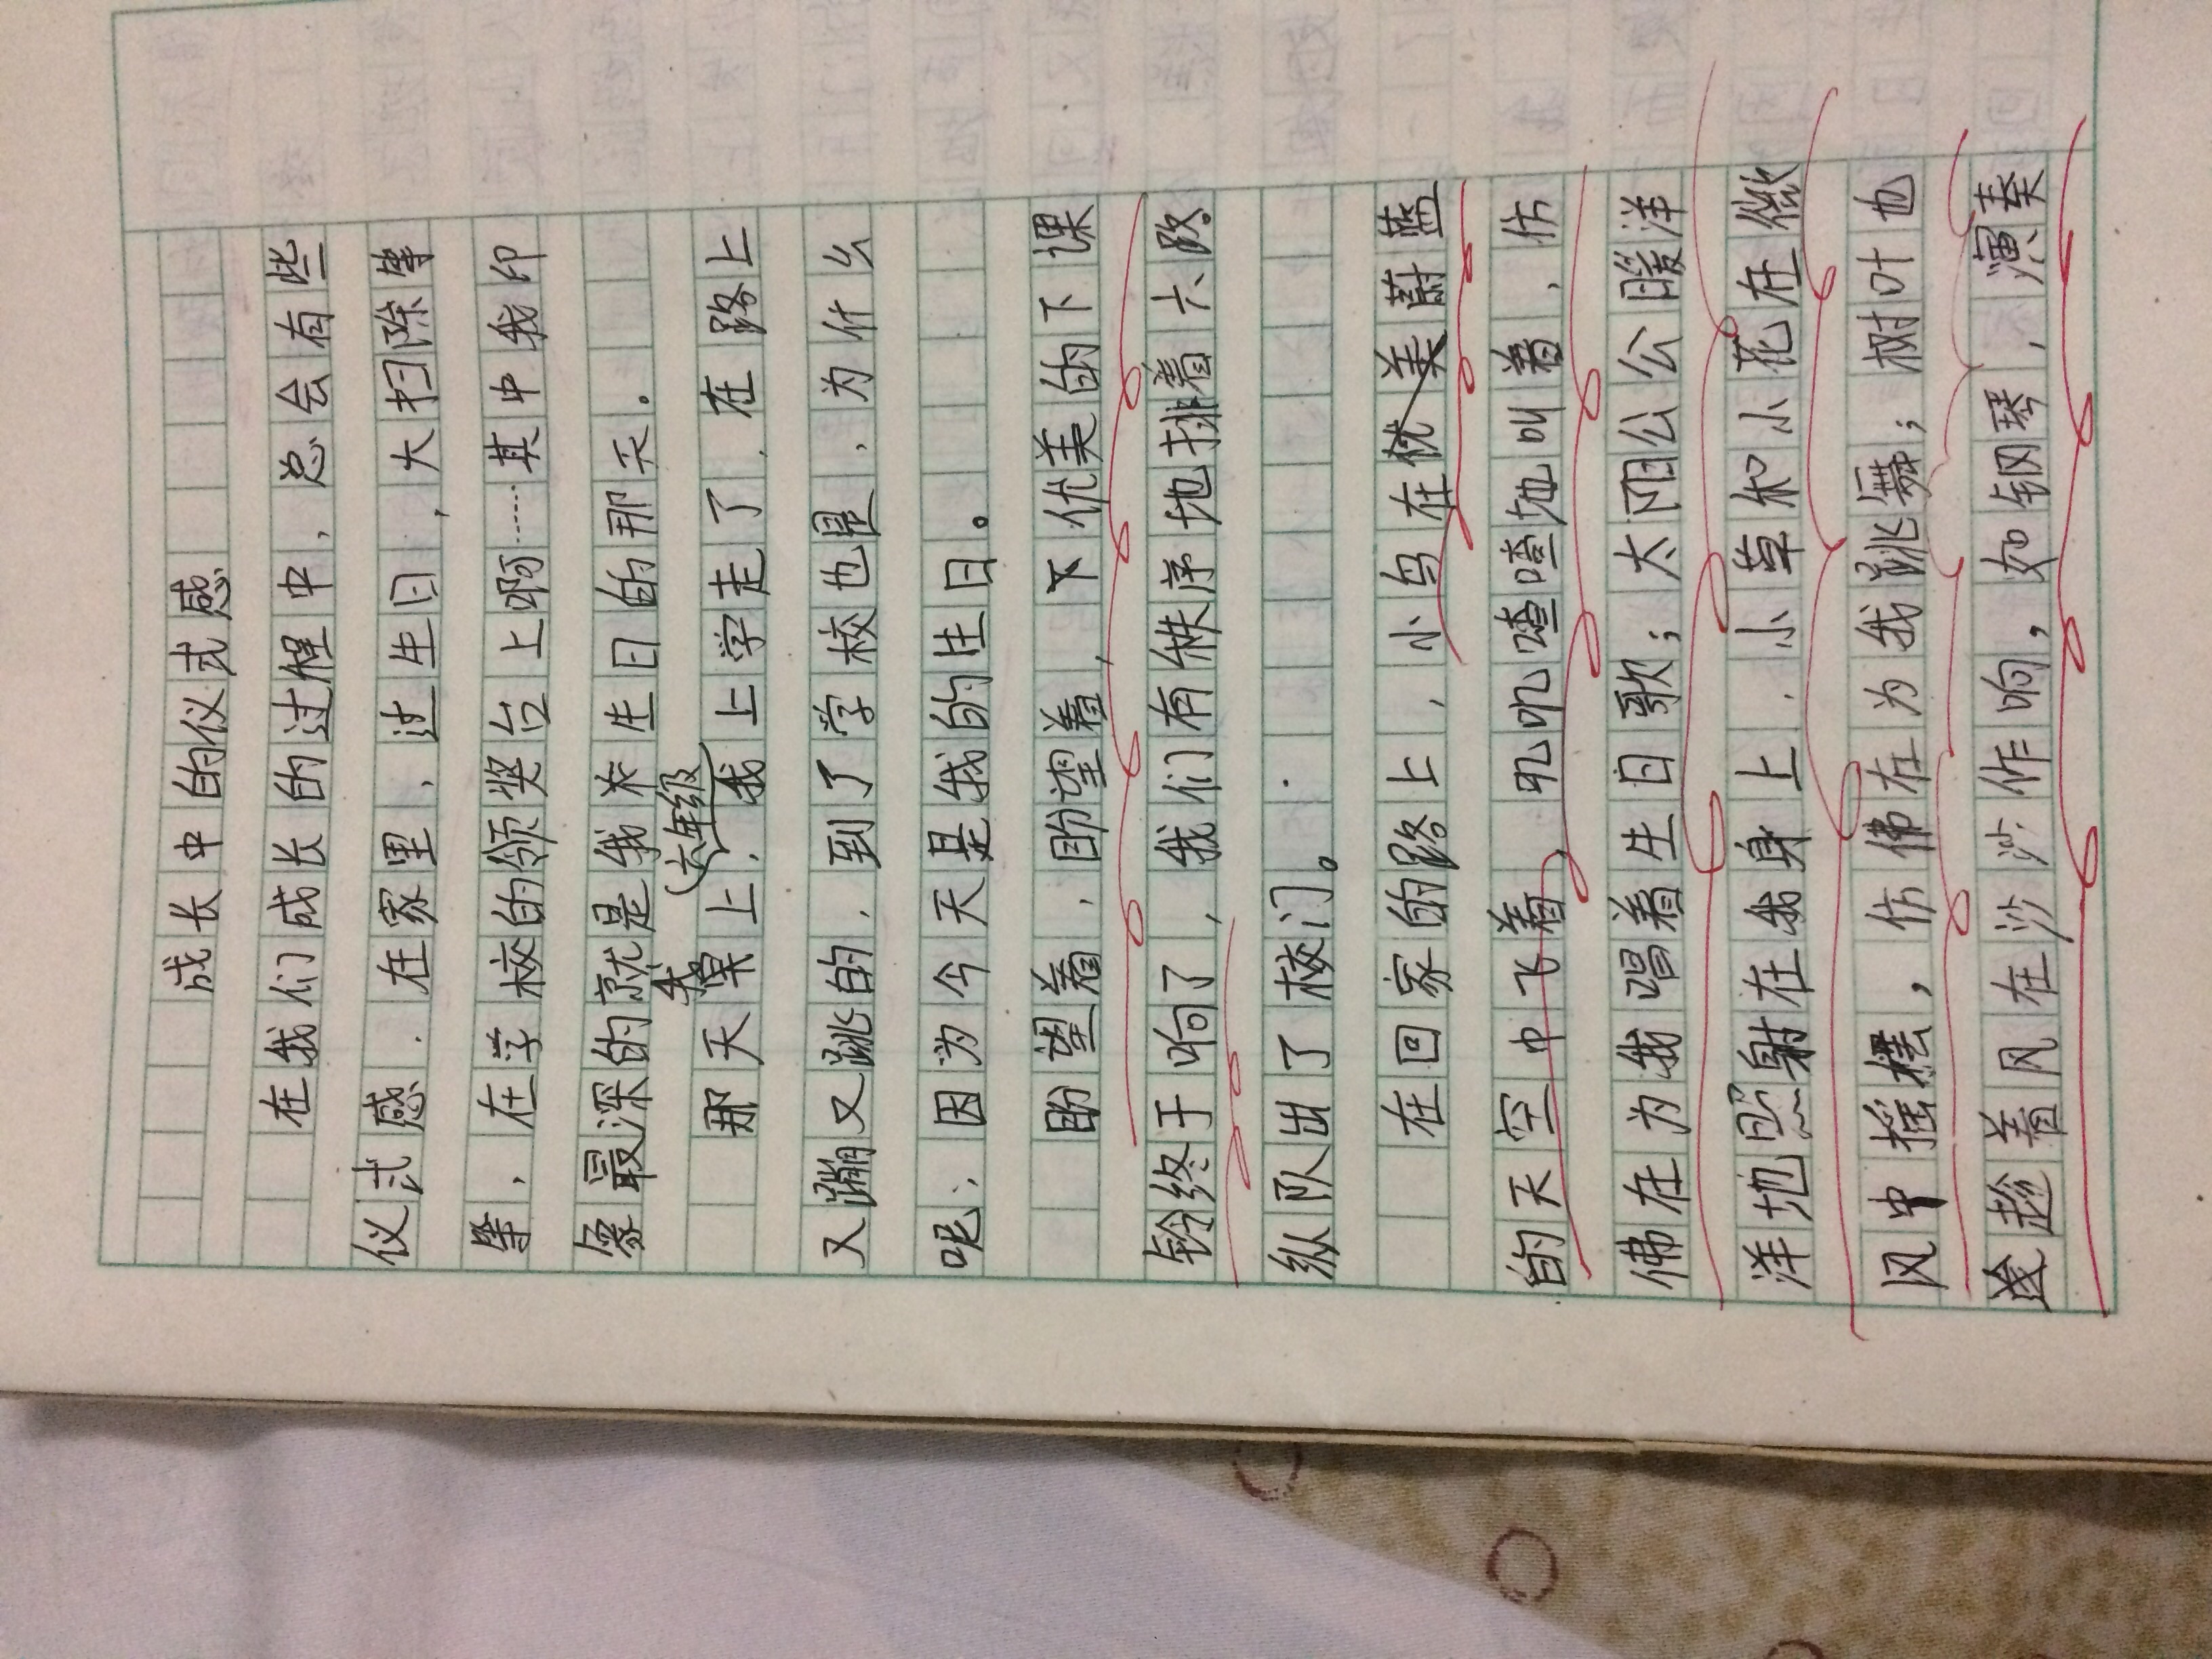 成长中的仪式感
在我们成长的过程中，总会有些
仪式感．在家里，过生日，大扫除等
等，在学校的领奖台上啊……其中我印
象最深的就是我养生日的那天。
我(六年级)
那天早上，我上学走了，在路上
又蹦又跳的，到了学校也是，为什么
呢，因为今天是我的生日。
盼望着，盼望着，下优美的下课
铃终于响了，我们有秩序地排着六路
纵队出了校门。
在回家的路上，小鸟在优美蔚蓝
的天空中飞着，叽叽喳喳地叫着，仿
佛在为我唱着生日歌；太阳公公暖洋
洋地照射在我身上，小草和小花在微
风中摇摆，仿佛在为我跳舞；树叶也
趁着风在沙沙作响，如钢琴，演奏